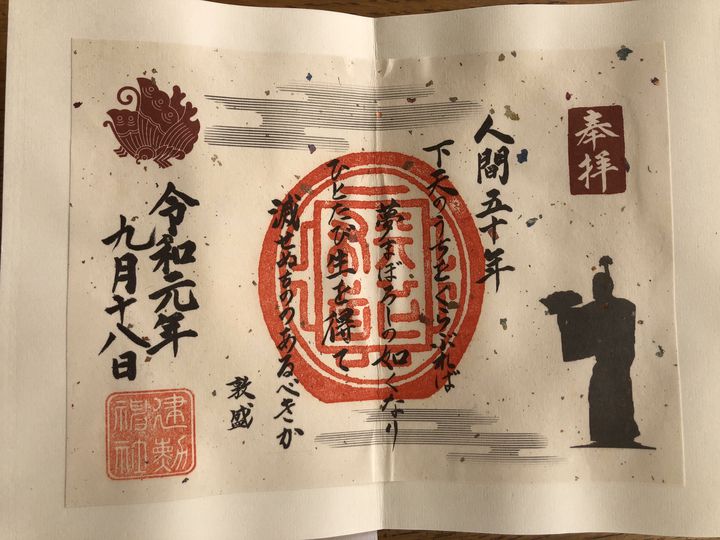 奉拝
人間五十年
下天のうちをくらぶれは
夢まぼろしの如くなり
ひとたび生を得て
滅せぬもののあるべきか
敦盛
令和元年
九月十八日
建勲
神社